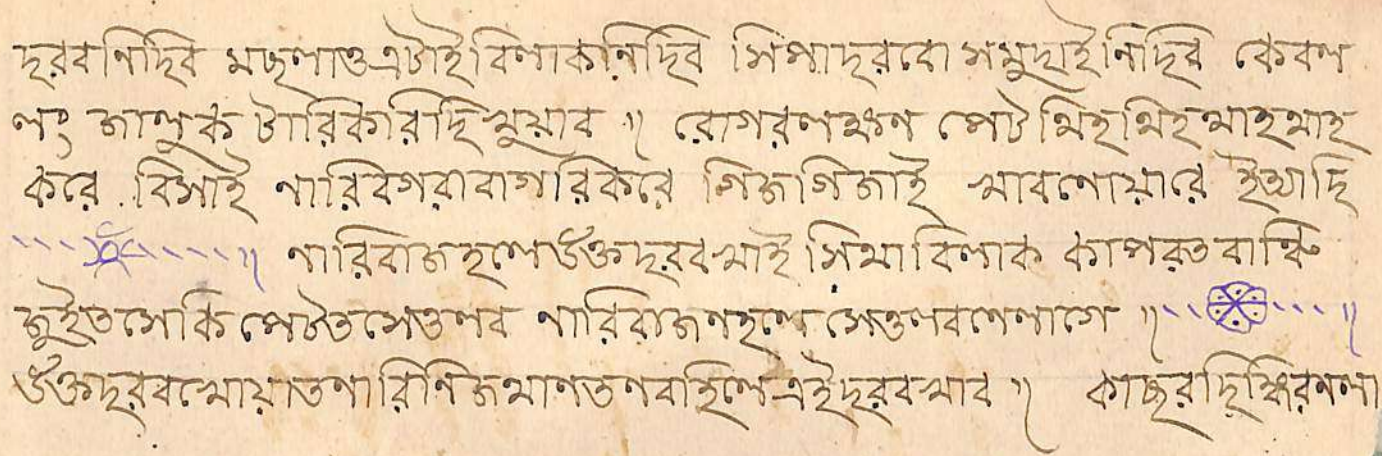 দৰব নিদিব মছলাও এটাই বিলাক নিদিব সিপা দৰবো সমুদাই নিদিব কেবল
লং জালুক টাৰি কৰি দি খুয়াব ॥ ৰোগৰ লক্ষণ পেট মিহ মিহ খাহ খাহ
কৰে বিসাই নাৰি বগৰা বাগৰি কৰে গিজগিজাই খাব নোয়াৰে ইত্যাদি
॥ নাৰি বাজ হলে উক্ত দৰব খাই সিথা বিলাক কাপৰত বান্ধি
জুইত সেকি পেটত সেও লব নাৰি বাজ নহলে সেও লব নেলাগে ॥ ॥
উক্ত দৰব খোয়াত নাৰি নিজ থানত নবহিলে এই দৰব খাব ॥ কাছৰ